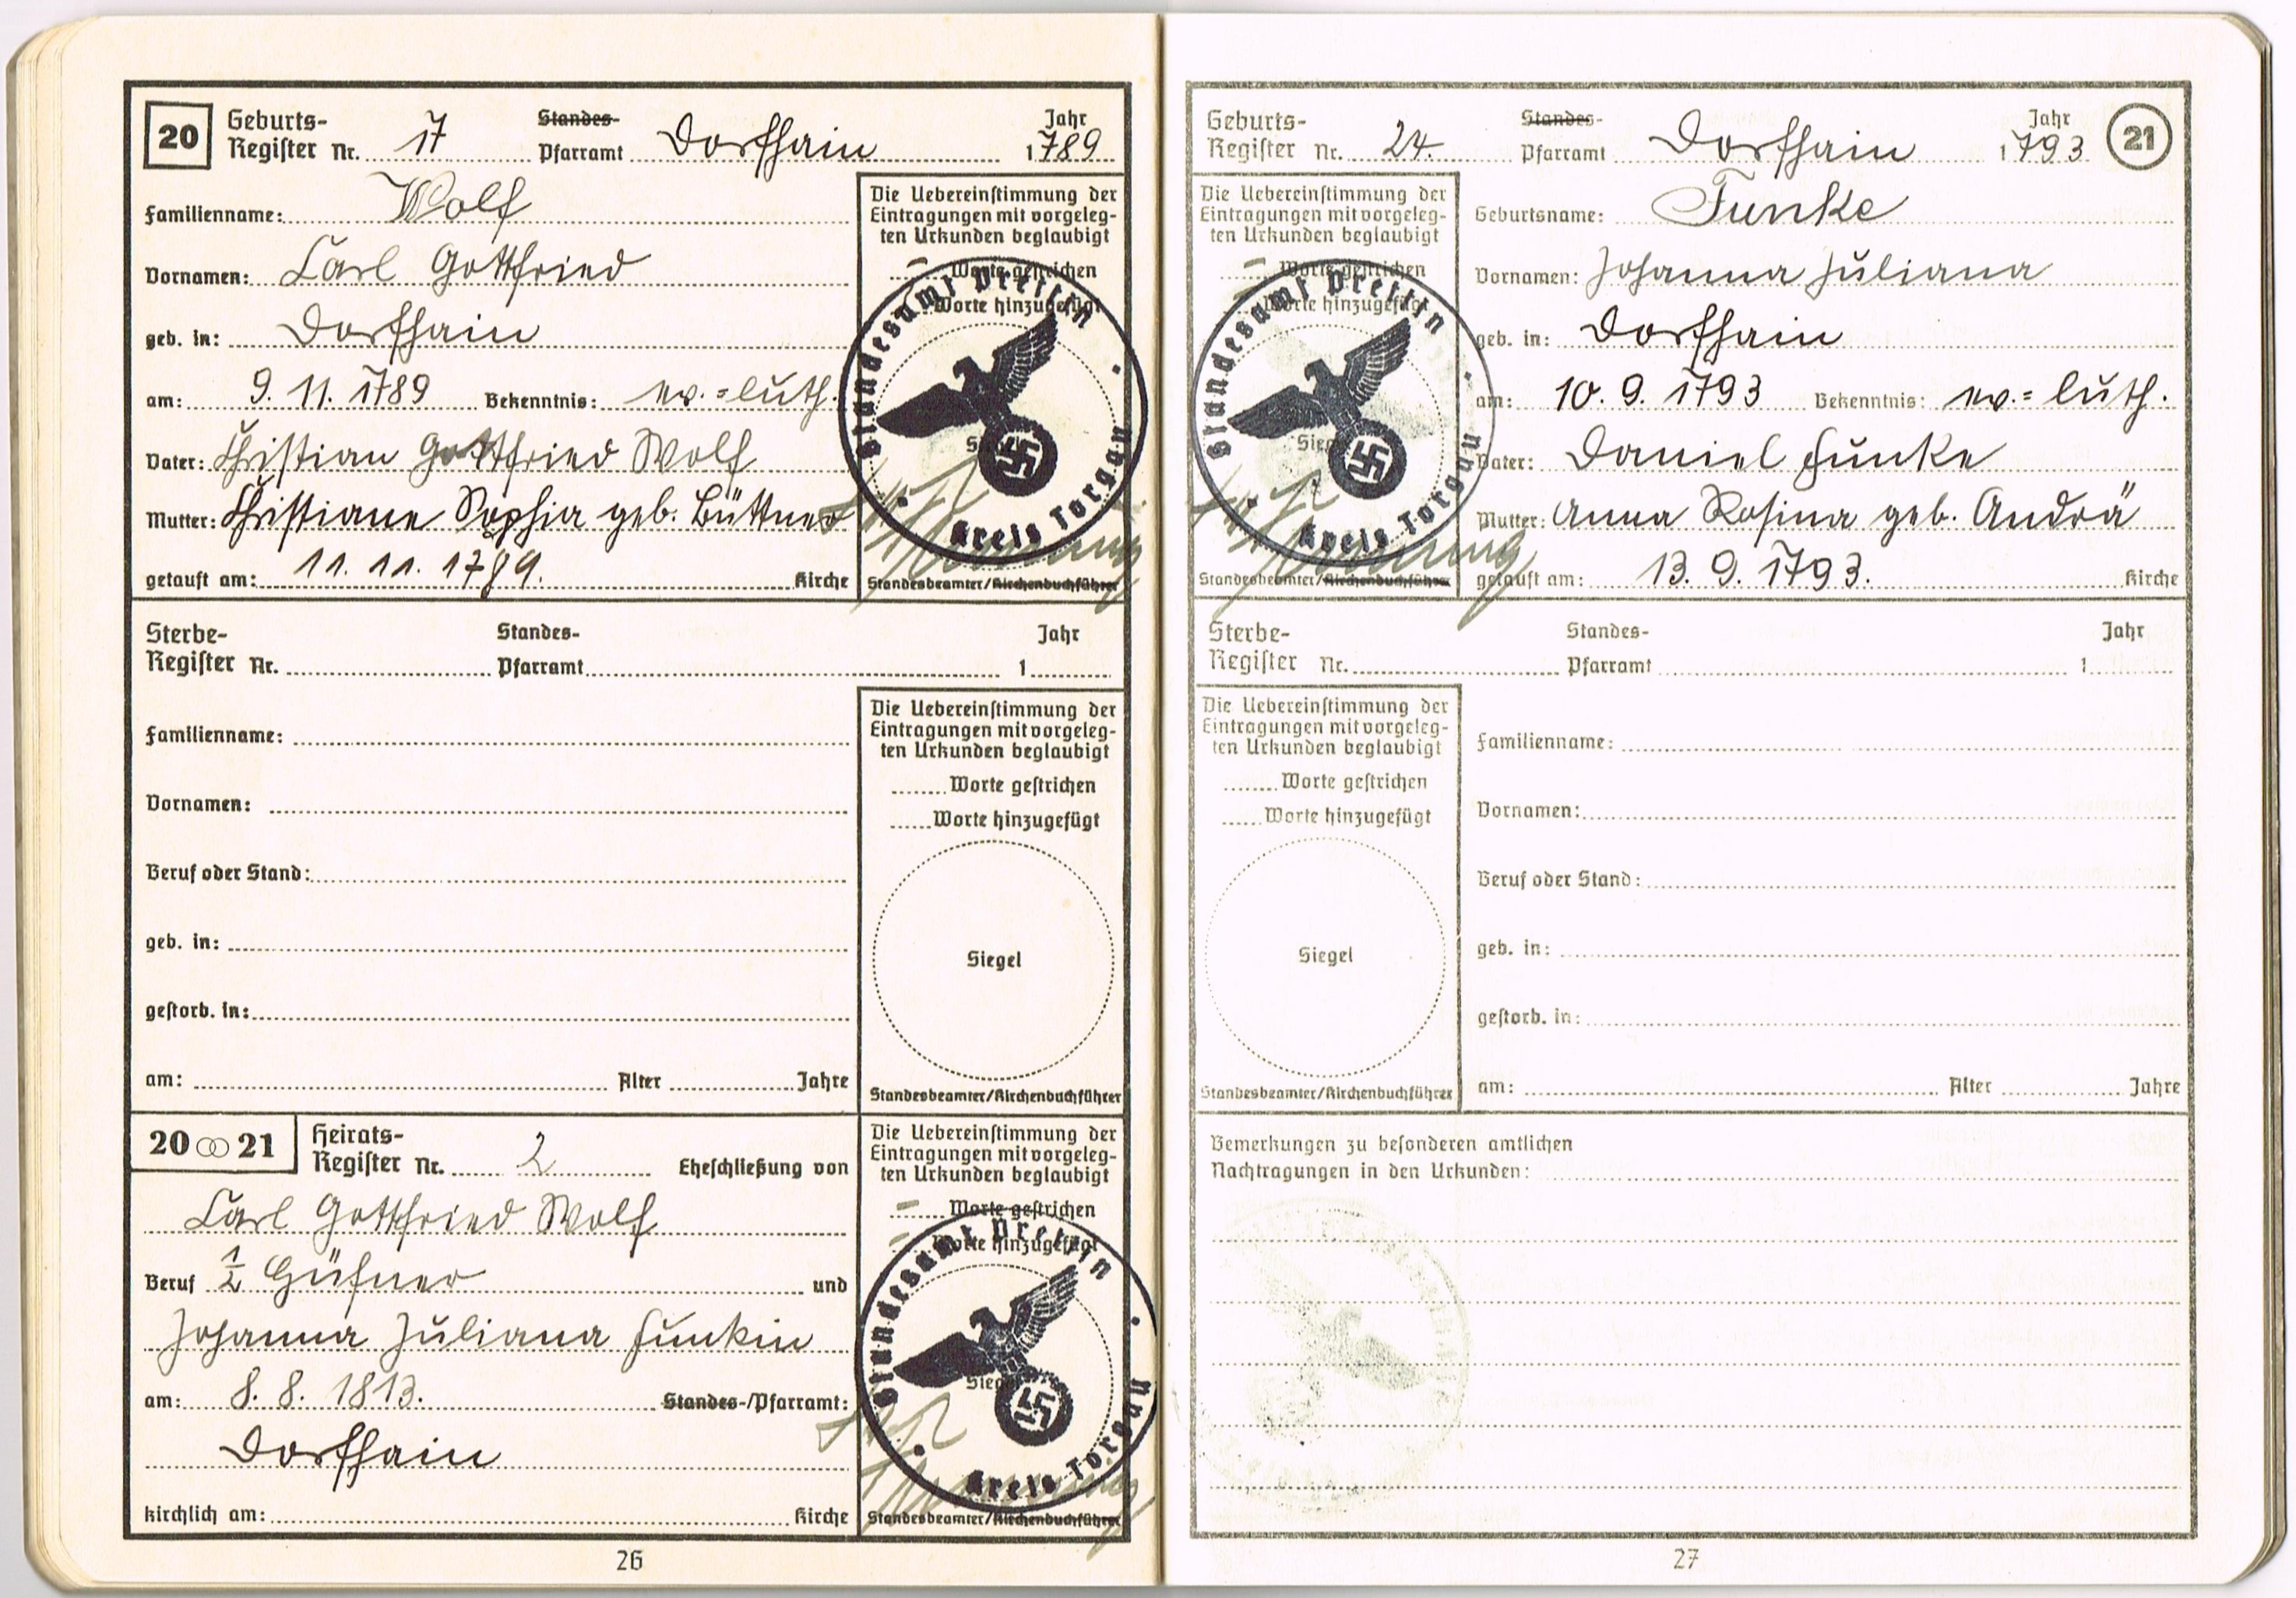 20 Geburts-
Register Nr. 17 Standes- Pfarramt Dorfhain Jahr 1789
Familienname: Wolf
Vornamen: Carl Gottfried
geb. in: Dorfhain
am: 9. 11. 1789 Bekenntnis: ev.=luth.
Vater: Christian Gottfried Wolf
Mutter: Christiane Sophia geb. Büttner
getauft am: 11. 11. 1789. Kirche
Die Uebereinstimmung der
Eintragungen mit vorgeleg-
ten Urkunden beglaubigt
– Worte gestrichen
Worte hinzugefügt
Siegel
Standesamt Prettin
Kreis Torgau
Standesbeamter/Kirchenbuchführer
Sterbe-
Register Nr. Standes- Pfarramt Jahr 1
Familienname:
Vornamen:
Beruf oder Stand:
geb. in:
gestorb. in:
am: Alter Jahre
Die Uebereinstimmung der
Eintragungen mit vorgeleg-
ten Urkunden beglaubigt
Worte gestrichen
Worte hinzugefügt
Siegel
Standesbeamter/Kirchenbuchführer
20 ∞ 21 Heirats-
Register Nr. 2 Eheschließung von
Carl Gottfried Wolf
Beruf ½ Hüfner und
Johanna Juliana Funkin
am: 8. 8. 1813. Standes-/Pfarramt:
Dorfhain
kirchlich am: Kirche
Die Uebereinstimmung der
Eintragungen mit vorgeleg-
ten Urkunden beglaubigt
– Worte gestrichen
– Worte hinzugefügt
Siegel
Standesamt Prettin
Kreis Torgau
Standesbeamter/Kirchenbuchführer
26
Geburts-
Register Nr. 24. Standes- Pfarramt Dorfhain Jahr 1793 21
Geburtsname: Funke
Vornamen: Johanna Juliana
geb. in: Dorfhain
am: 10. 9. 1793 Bekenntnis: ev.=luth.
Vater: Daniel Funke
Mutter: Anna Rosina geb. Andrä
getauft am: 13. 9. 1793. Kirche
Die Uebereinstimmung der
Eintragungen mit vorgeleg-
ten Urkunden beglaubigt
– Worte gestrichen
– Worte hinzugefügt
Siegel
Standesamt Prettin
Kreis Torgau
Standesbeamter/Kirchenbuchführer
Sterbe-
Register Nr. Standes- Pfarramt Jahr 1
Die Uebereinstimmung der
Eintragungen mit vorgeleg-
ten Urkunden beglaubigt
Worte gestrichen
Worte hinzugefügt
Siegel
Standesbeamter/Kirchenbuchführer
Familienname:
Vornamen:
Beruf oder Stand:
geb. in:
gestorb. in:
am: Alter Jahre
Bemerkungen zu besonderen amtlichen
Nachtragungen in den Urkunden:
27